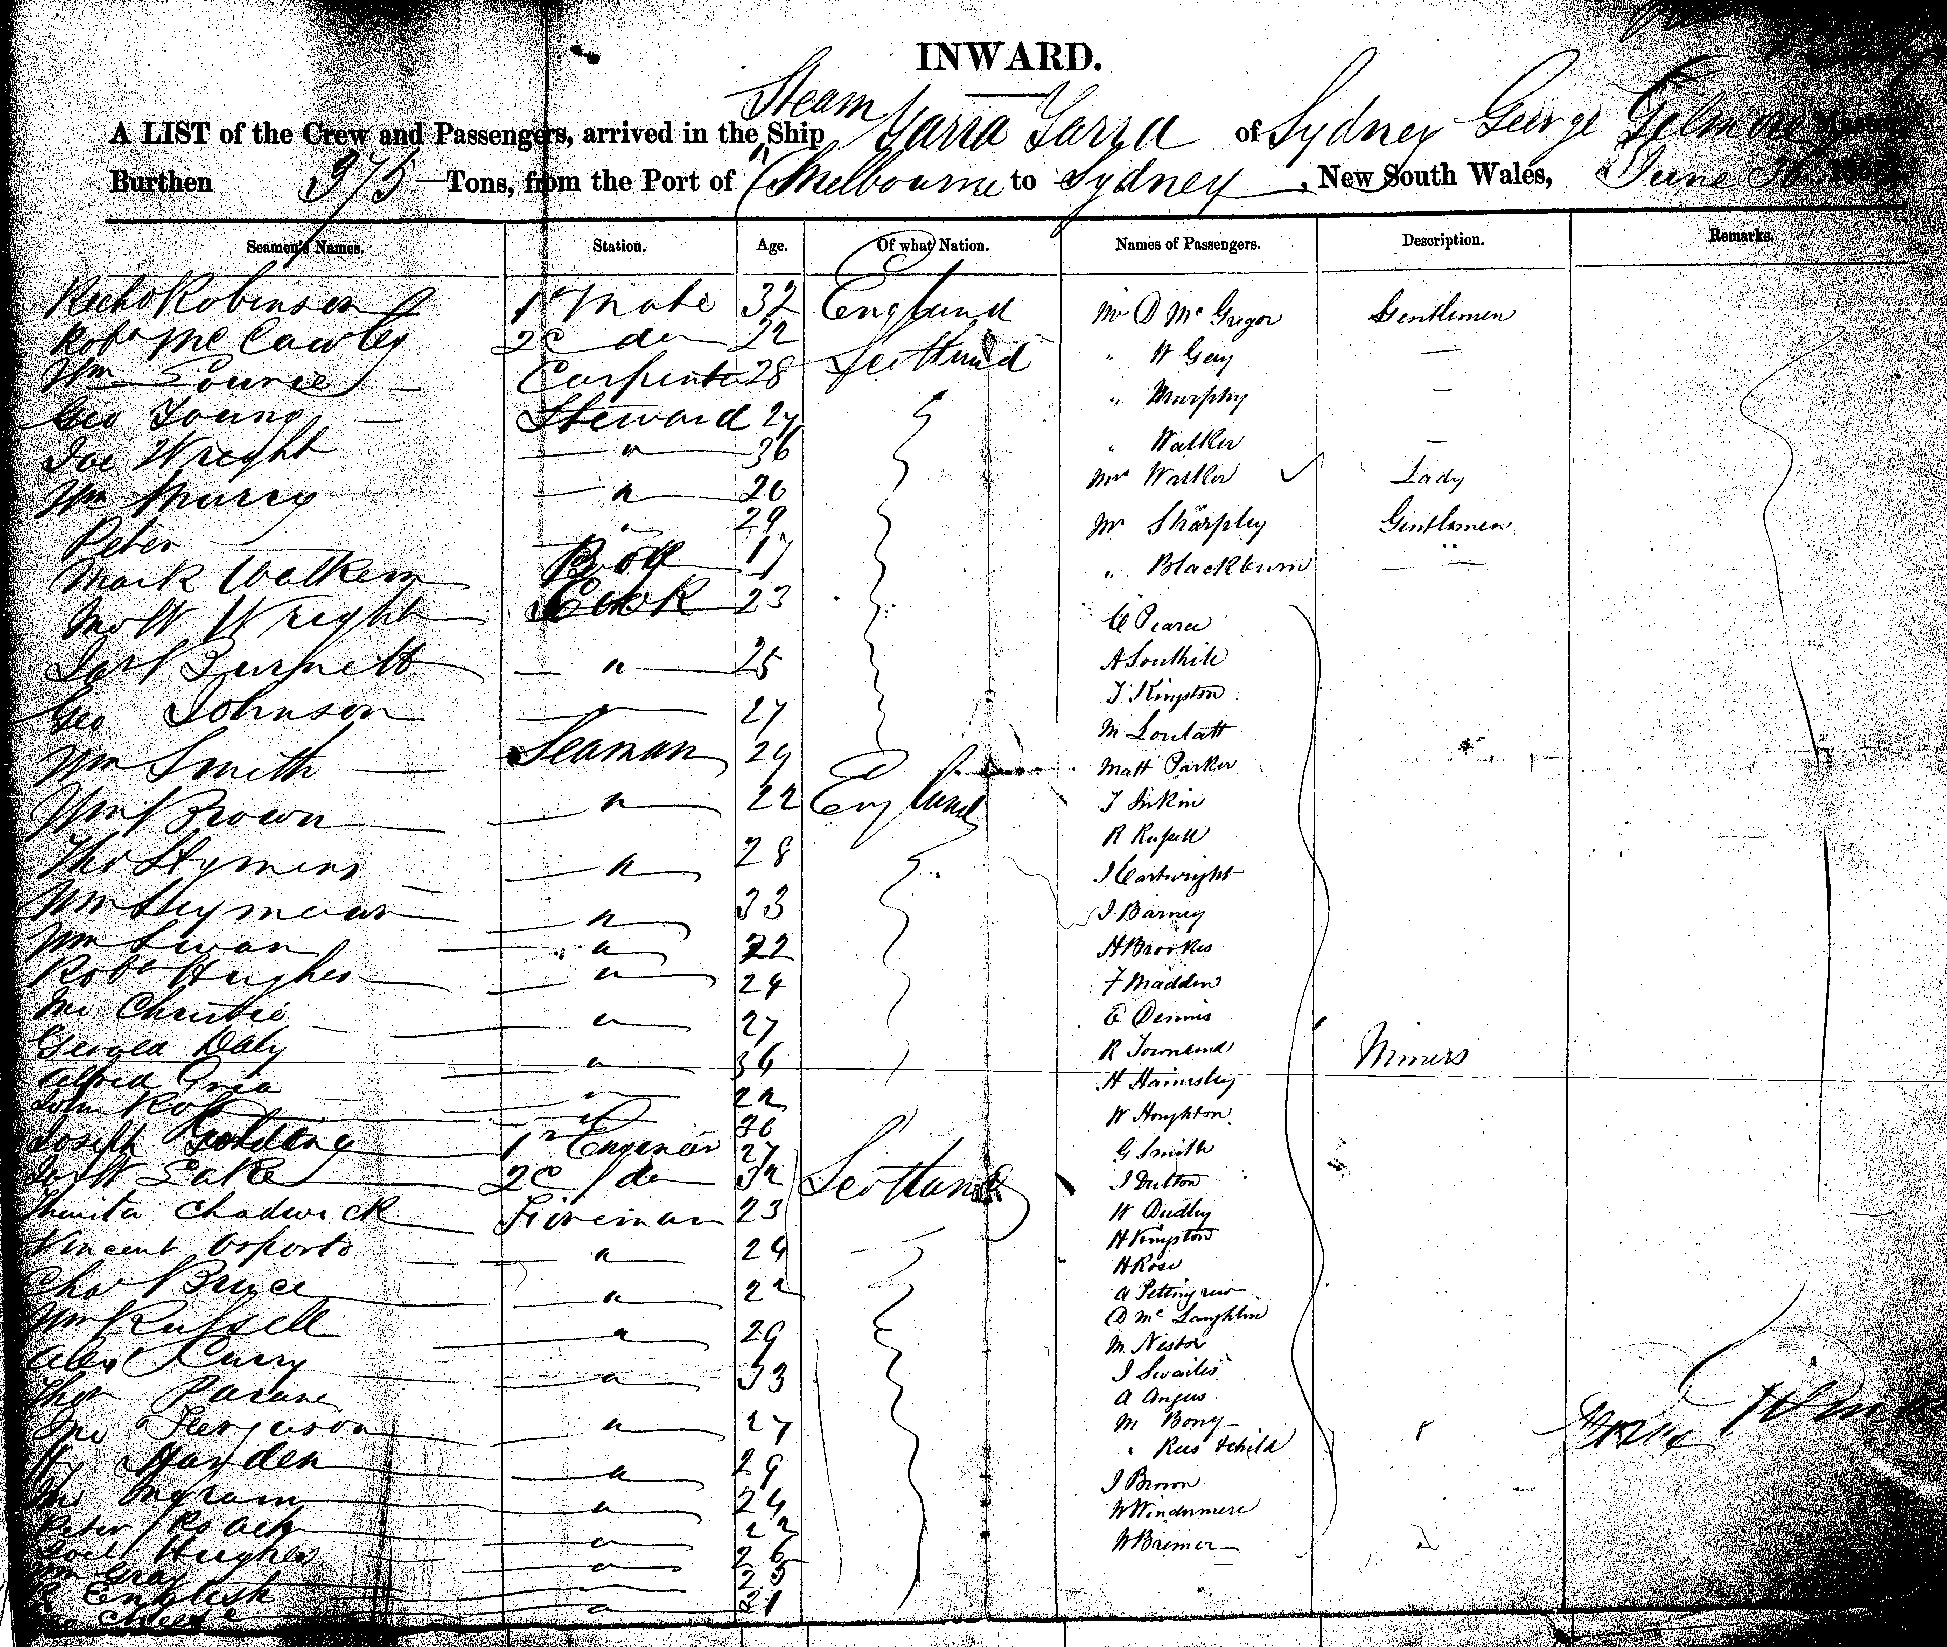 INWARD.
A LIST of the Crew and Passengers, arrived in the Steam Ship Yarra Yarra of Sydney George Gilmore
Burthen 375 Tons, from the Port of Melbourne to Sydney, New South Wales, June
Seamen's Names. Station. Age. Of what Nation. Names of Passengers. Description. Remarks.
Richd Robinson 1st Mate 32 England Mr D Mc Gregor Gentlemen
Robt Mc Cawley 2d do 22 Scotland " W Gray —
Wm Carpenter 28 " Murphy —
Geo Young Steward 27 " Walker —
Jas Wright " 36 Mrs Walker Lady
Wm Murray " 20 Mr Sharpley Gentlemen
Peter " 29 " Blackburn
Mark Walkem Boy 17 C Pearce
Wright Cook 23 A Southile
Jas Burnett " 25 T Kingston
Geo Johnson " 27 M
Wm Smith Seaman 29 Matt Parker
Wm Brown " 22 England T
Tho Hymens " 28 R Russell
Wm Seymour " 33 J Cartwright
Wm Swan " 22 J Barney
Robt Hughes " 24 H Brookes
Christie " 27 F Madden
George Daly " 36 E Dennis
Alfred " 22 R Townsend Miners
John " 36 H Hainsley
Joseph Golding 1st Engineer 27 W Houghton
Lake 2d do 32 Scotland G Smith
Chadwick Fireman 23 J Dutton
Vincent Oporto " 24 W Dudley
Chas Bruce " 22 H Kingston
Wm Russell " 29 H Rose
Alex Curry " 33 A Pettingrew
Thos D Mc Laughlin
Jno Ferguson " 27 M Nestor
Hy Harden " 29 J Swailes
Ingram " 24 A Angus
Peter Roach " 22 M Bony
Hughes " 26 " Rus &child
Wm Gray " 25 J Brown
R English " 21 W Windermere
W Bremer